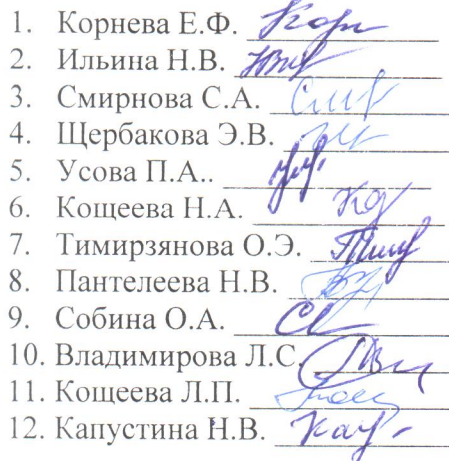 1. Корнева Е.Ф.
2. Ильина Н.В.
3. Смирнова С.А.
4. Щербакова Э.В.
5. Усова П.А..
6. Кощеева Н.А.
7. Тимирзянова О.Э.
8. Пантелеева Н.В.
9. Собина О.А.
10. Владимирова Л.С.
11. Кощеева Л.П.
12. Капустина Н.В.